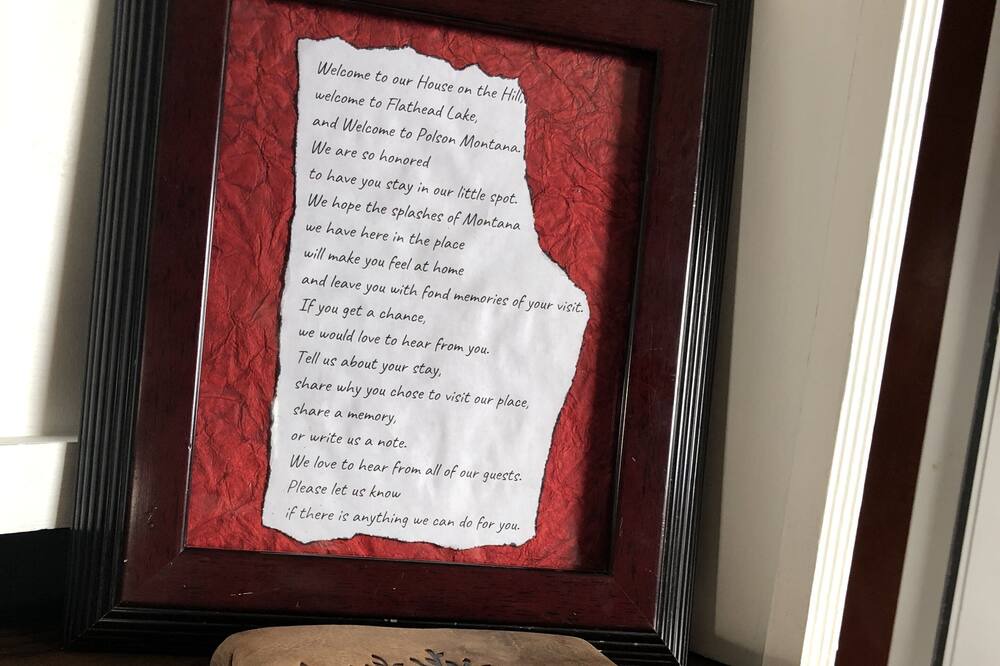 Welcome to our House on the Hill,
welcome to Flathead Lake,
and Welcome to Polson Montana.
We are so honored
to have you stay in our little spot.
We hope the splashes of Montana
we have here in the place
will make you feel at home
and leave you with fond memories of your visit.
If you get a chance,
we would love to hear from you.
Tell us about your stay,
share why you chose to visit our place,
share a memory,
or write us a note.
We love to hear from all of our guests.
Please let us know
if there is anything we can do for you.